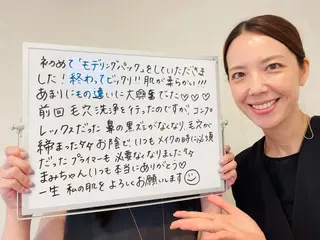 初めて「モデリングパック」をしていただきま
した！終わってビックリ!!肌が柔らかい!!!
あまりにもの違いに大興奮でした♡♡♡
前回 毛穴洗浄を行ったのですが、コンプ
レックスだった 鼻の黒ズミがなくなり、毛穴が
締まった々々 お陰で、いつもメイクの時に必須
だったプライマーも必要なくなりました々々
まみちゃん いつも本当にありがとう♡
一生 私の肌を よろしくお願いします☺